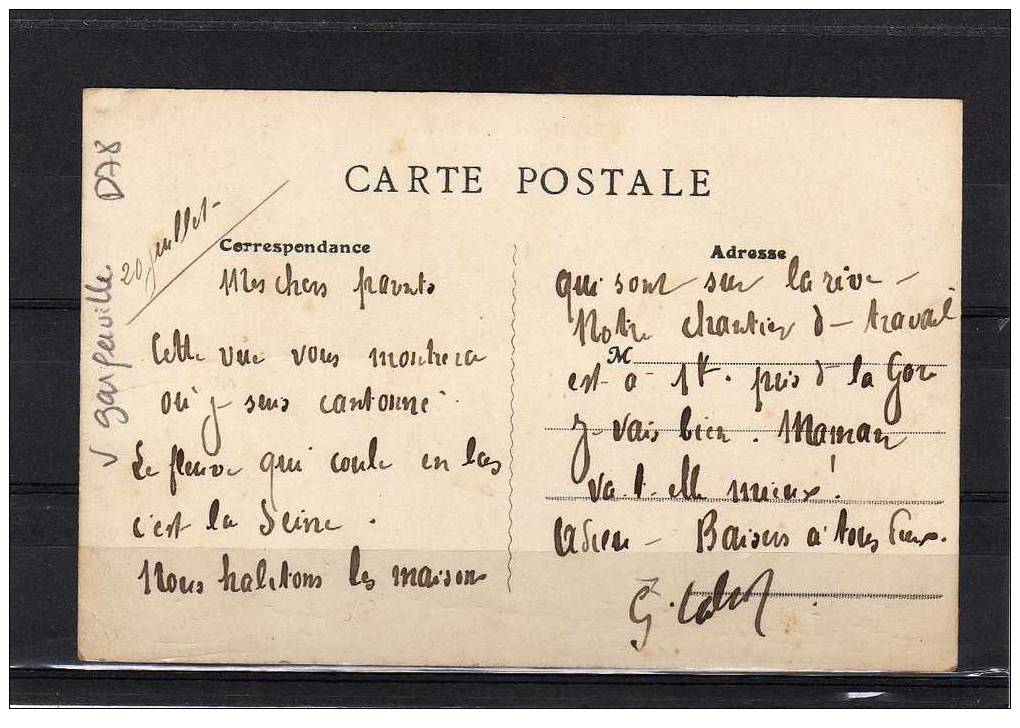 CARTE POSTALE
D78
V Gargenville
20 juillet
Correspondance
Mes chers parents
Cette vue vous montrera
où je suis cantonné.
Le fleuve qui coule en bas
c'est la Seine.
Nous habitons les maisons
Adresse
qui sont sur la rive -
Notre chantier de travail
M
est à 1k. près de la Gare
Je vais bien. Maman
va-t-elle mieux!
Adieu - Baisers à tous
G.